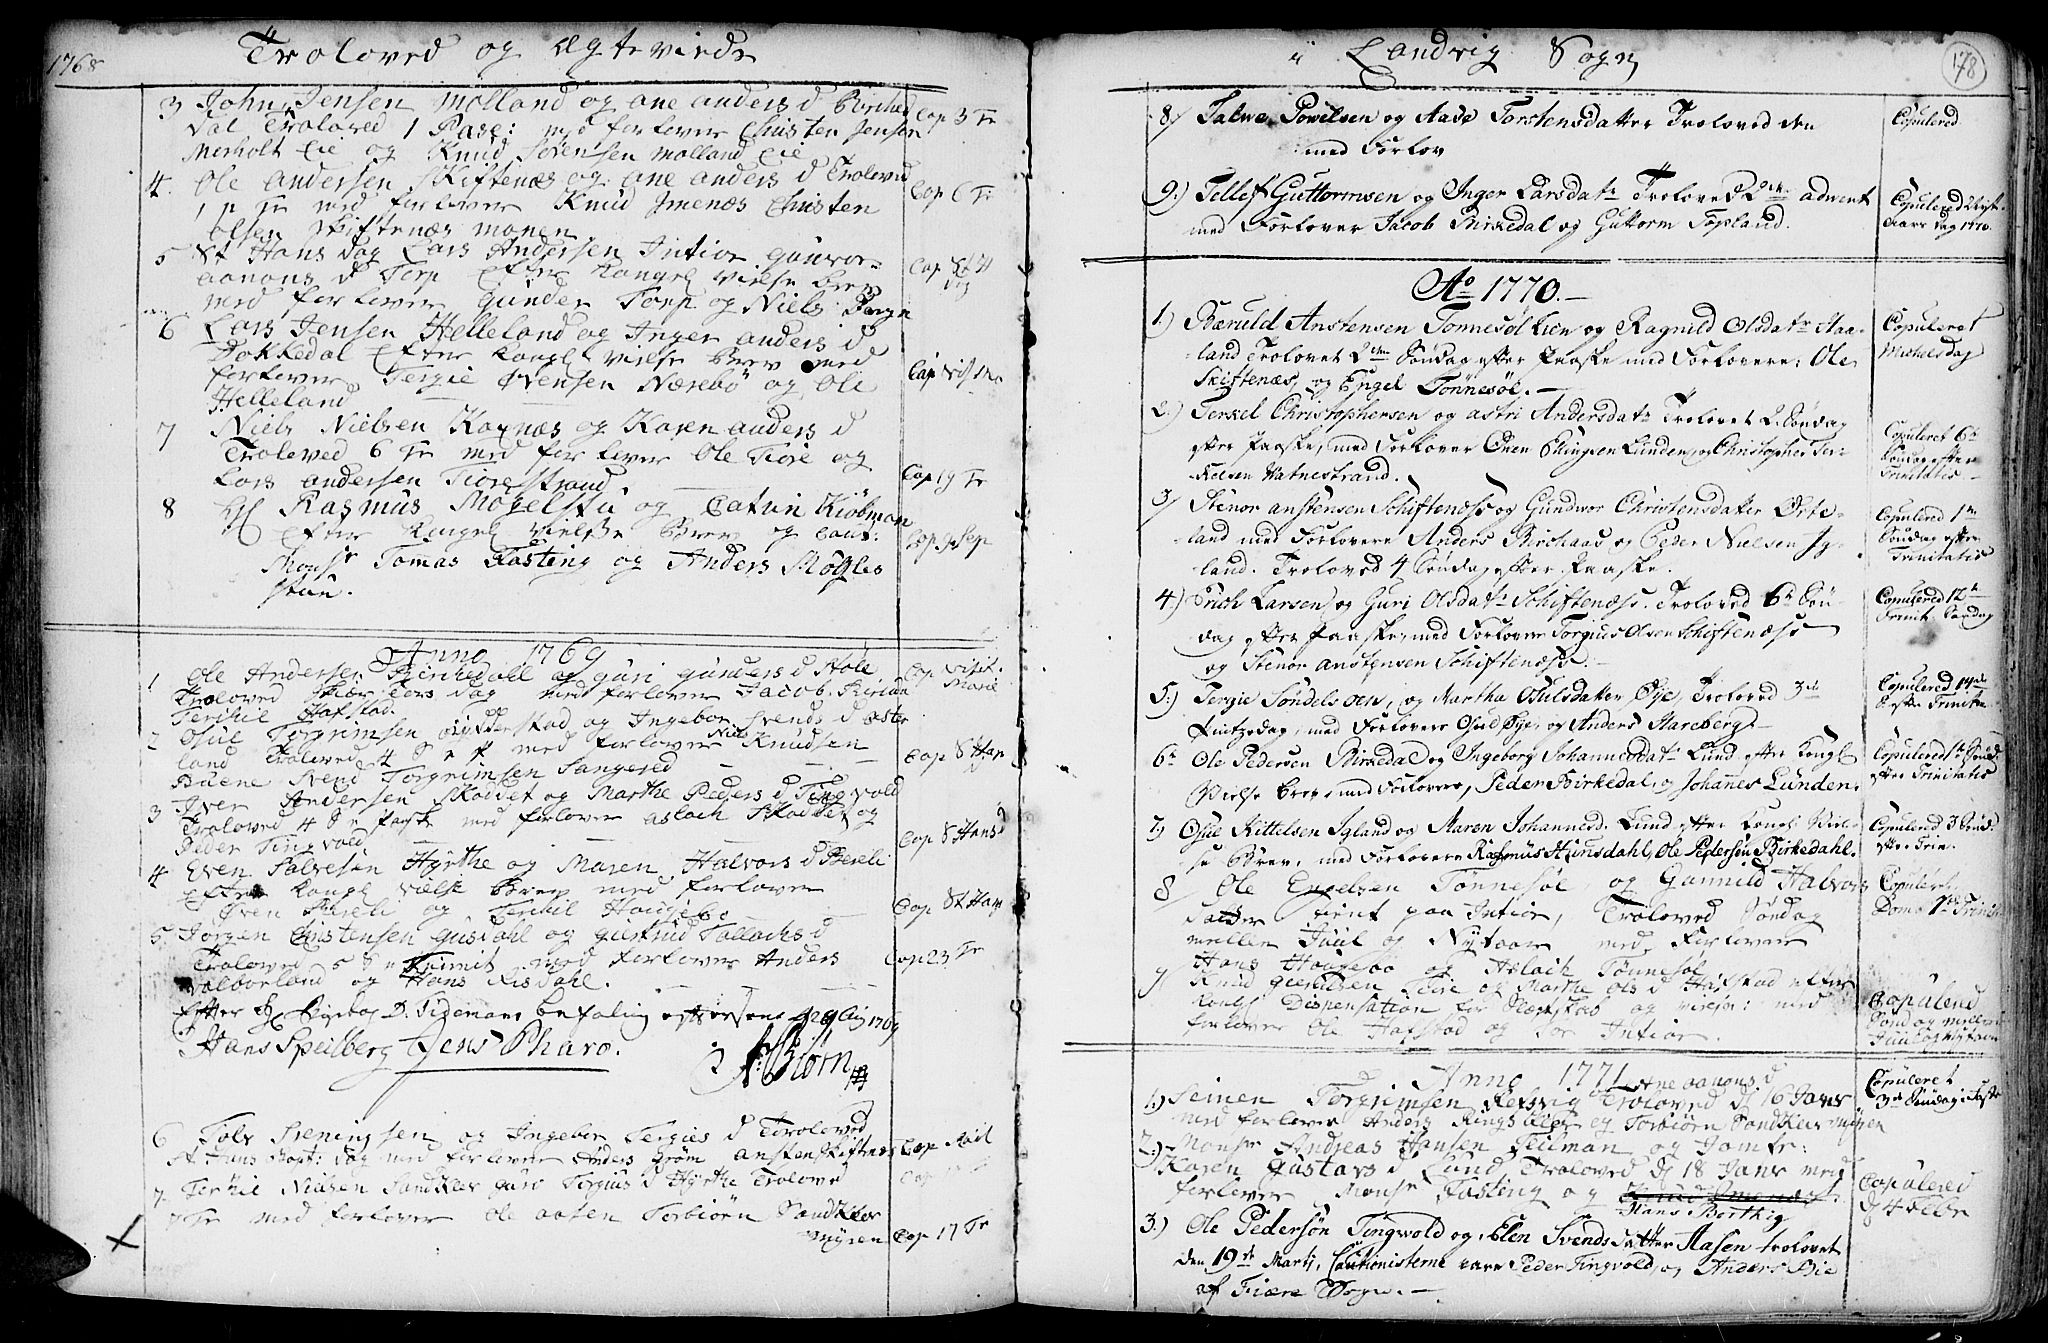 1768
Troloved og Ægtevirde
3 John Jensen Molland og ane anders d Birched
dal Troloved 1 Pase: med forlover Christen Jensen
Merholt Eie og Knud Sørensen Molland Eie
Cop 3 Tr
4. Ole Andersen Skiftenæs og ane anders d Troloved
1 p Tr med forlover Knud Imenæs Christen
Olsen Skiftenæs monen
Cop 6 Tr
5 St Hans Dag Lars Andersen Intior gunvor
aanons d Torp Efter Kongel Vielse brev
med forlover Gunder Torp og Niels
Cop St H
dag
6 Lars Jensen Helleland og Inger anders d
Dokkedal Efter Kongel Vielse Brev med
forlover Tergie Evensen Næsebö og Ole
Helleland
Cap
7 Niels Nielsen Kaxnæs og Karen anders d
Troloved 6 Tr med forlover Ole Fiære og
Lars andersen Fiære Strand
Cap 19 Tr
8 Hr Rasmus Mögelstu og Catrin Kiöbman
Efter Kongel Vielse Brev og Caut:
Monsr Tomas Fasting og Anders Mögles
stuu.
Cop 9 Sep
Anno 1769
1 Ole Andersen Birkedahl og guri gunders d Hole
Troloved Skær Tors dag med forlover Jacob
Terchil Hafstad.
Cop Visit.
Marie
2 Osul Torgrimsen Ridderstad og Ingebor Svends d Øster
land Troloved 4 S e p med forlover Niels Knudsen
Buene Svend Torgrimsen Sangereid
Cap St Han
3 Iver Andersen Skoddet og Marthe Peders d Tingvold
Troloved 4 S e paaske med forlover aslach Skoddet og
Peder Tingvold
Cop St Hans d
4 Even Salvesen Hyrthe og Maren Halvors d Bereli
Efter Kongl Vielse Brev med forlover
Even Bereli og Terchil Hougebo
Cop St Han
5. Jørgen Christensen Gusdahl og Giertrud Tallachs d
Troloved 5 S e Trinit med forlover Anders
Valborland og Hans Risdahl.
Cop 23 Tr
Efter Hr Bispens D. Tidemans befaling efterseens d 29 Aug 1769
Hans Speilberg Jens Pharo.
Biörn
6 Tolv Sveningsen og Ingebor Tergies d Troloved
St Hans Bapt: dag med forlover Anders Gröm anstenskiftnæs
Cop
7 Terkil Nielsen Sandkler guro Torgius d Hyrthe Troloved
7 Tr med forlover Ole aasen Torbiörn Sandkler
myren
Cop 17 Tr
X
i Landvig Sogn
178
8/ Salve Powelsen og Aase Torstensdatter Troloved den
med Forlov
Copulered
9.) Tellef Guttormsen og Inger Larsdatr Troloved 2den advent
med Forlover Jacob Birkedal og Guttorm Topland.
Copulered Nyt-
aars dag 1770.
Ao 1770.
1.) Bæruld Anstensen Tonnesöl Eien og Ragnild Olsdatr Haa-
land Trolovet 2den Søndag efter Paaske med Forlovere: Ole
Skiftenæs, og Engel Tönnesöl.
Copuleret
Michelsdag
2.) Terkel Christophersen og astri Andersdatr Trolovet 2. Søndag
efter Paaske, med Forlover Lunden, og Christopher Ter-
kelsen Vatnestrand.
Copuleret 6te
Søndag efter
Trinitatis
3/ Stenor anstensen Schiftenæss og Gundwor Christensdatter Øste-
land med Forlovere Anders Birchaas og Peder Nielsen Ig-
land. Troloved 4 Søndag efter Paaske.
Copulered 1ste
Søndag efter
Trinitatis
4.) Erich Larsen og Guri Olsdatr Schiftenæss. Troloved 6te Søn-
dag efter Paaske, med Forlover Torgius Olsen Schiftenæss
og Stenor anstensen Schiftenæss.
Copulered 12te
Trinit. Søndag
5.) Tergie Söndelsøen, og Martha Osulsdatter Øye, Troloved 3die
Pintzedag, med Forlovere Osul Øye, og Anders Aareberg.
Copulered 14de
S. efter Trinita.
6te Ole Pedersen Birkedal og Ingeborg Johannesdatr Lund efter Kongl
Vielse brev, med Forlovere, Peder Birkedal, og Johannes Lunden.
Copulered 1ste Sønd
efter Trinitatis
7.) Osul Kittelsen Igland og Maren Johannesd. Lund efter Kongl Viel-
se Brev, med Forlovere Rasmus Hunsdahl, Ole Pedersen Birkedahl.
Copulered 3 Sønd.
efter Trin.
8 Ole Engelsen Tönnesöl, og Gunnild Halvors
datter tient paa Intior, Troloved Søndag
mellem Juul og Nytaar med forlover
Hans Hougebo og Aslach Tönnesöl
Copulert
Dom 1ste Trinit
9/ Knud giertsen Leire og Marthe Ols d Hafstad efter
Kongl Dispensation for Slægtskab og vielse: med
forlover Ole Hafstad og Tor Intior.
Copulerd
Sønd og mellem
Juul og Nytaar
Anno 1771
1.) Seinen Torgrimsen Refsvig Ane aanons d Troloved d 16 Janr
med forlover Anders Ringsöller og Torbiörn Sandkler myren
Copuleret
3de Søndag i Faste
2.) Monsr Andreas Hansen Teilman og Jomfr:
Karen Gustavs d Lund Troloved d 18 Janr med
forlover Monsr Fasting og
Hans Berthig
Copulered
d 4 Febr
3.) Ole Pedersøn Tingwold og Elen Svends datter Aasen trolovet
den 19de Martij, Cautionisterne vare Peder Tingvold, og Anders Bie
af Fiære Sogn.